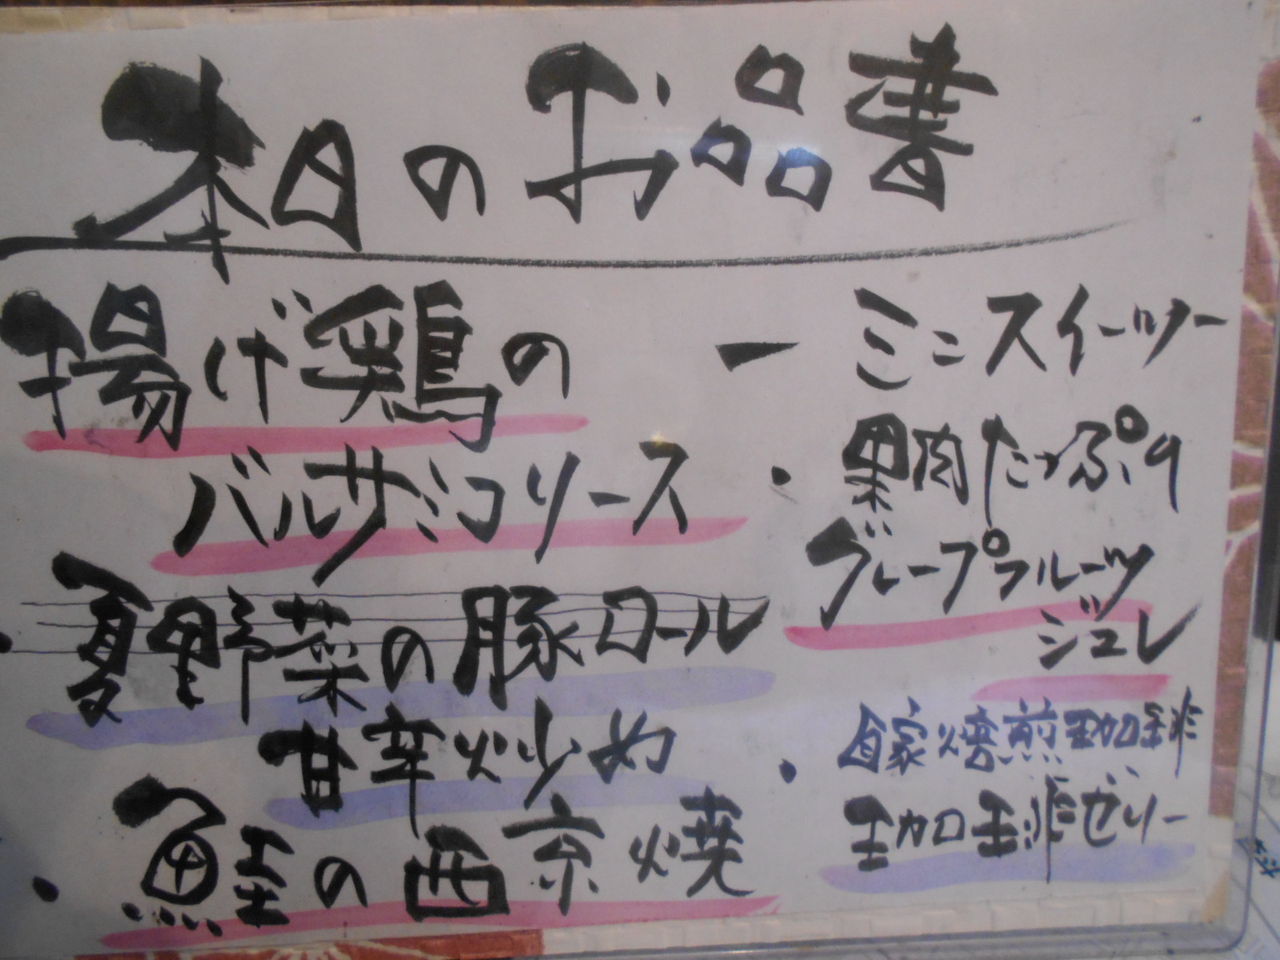 本日のお品書
揚げ鶏の
バルサミコソース
・夏野菜の豚ロール
甘辛炒め
・鮭の西京焼
ー ミニスイーツー
・果肉たっぷり
グレープフルーツ
ジュレ
・自家焙煎珈琲
珈琲ゼリー